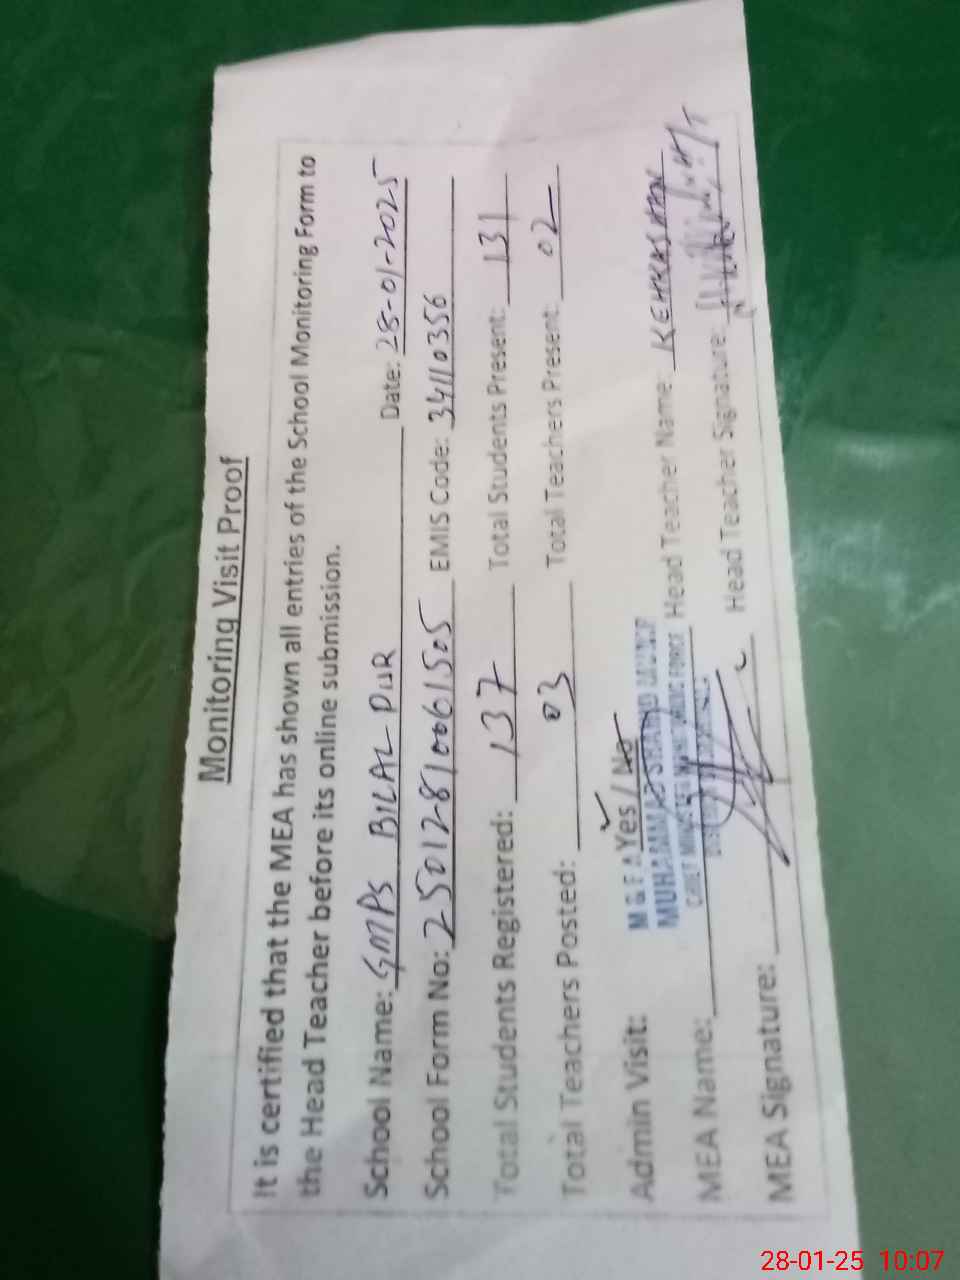 Monitoring Visit Proof
It is certified that the MEA has shown all entries of the School Monitoring Form to
the Head Teacher before its online submission.
School Name: GMPS BILAL PUR Date: 28-01-2025
School Form No: 25012810061505 EMIS Code: 34110356
Total Students Registered: 137 Total Students Present: 131
Total Teachers Posted: 03 Total Teachers Present: 02
Admin Visit: Yes / No
M & E A
MUHAMMAD
MEA Name: Head Teacher Name: KEHKASHAN
MEA Signature: Head Teacher Signature:
28-01-25 10:07